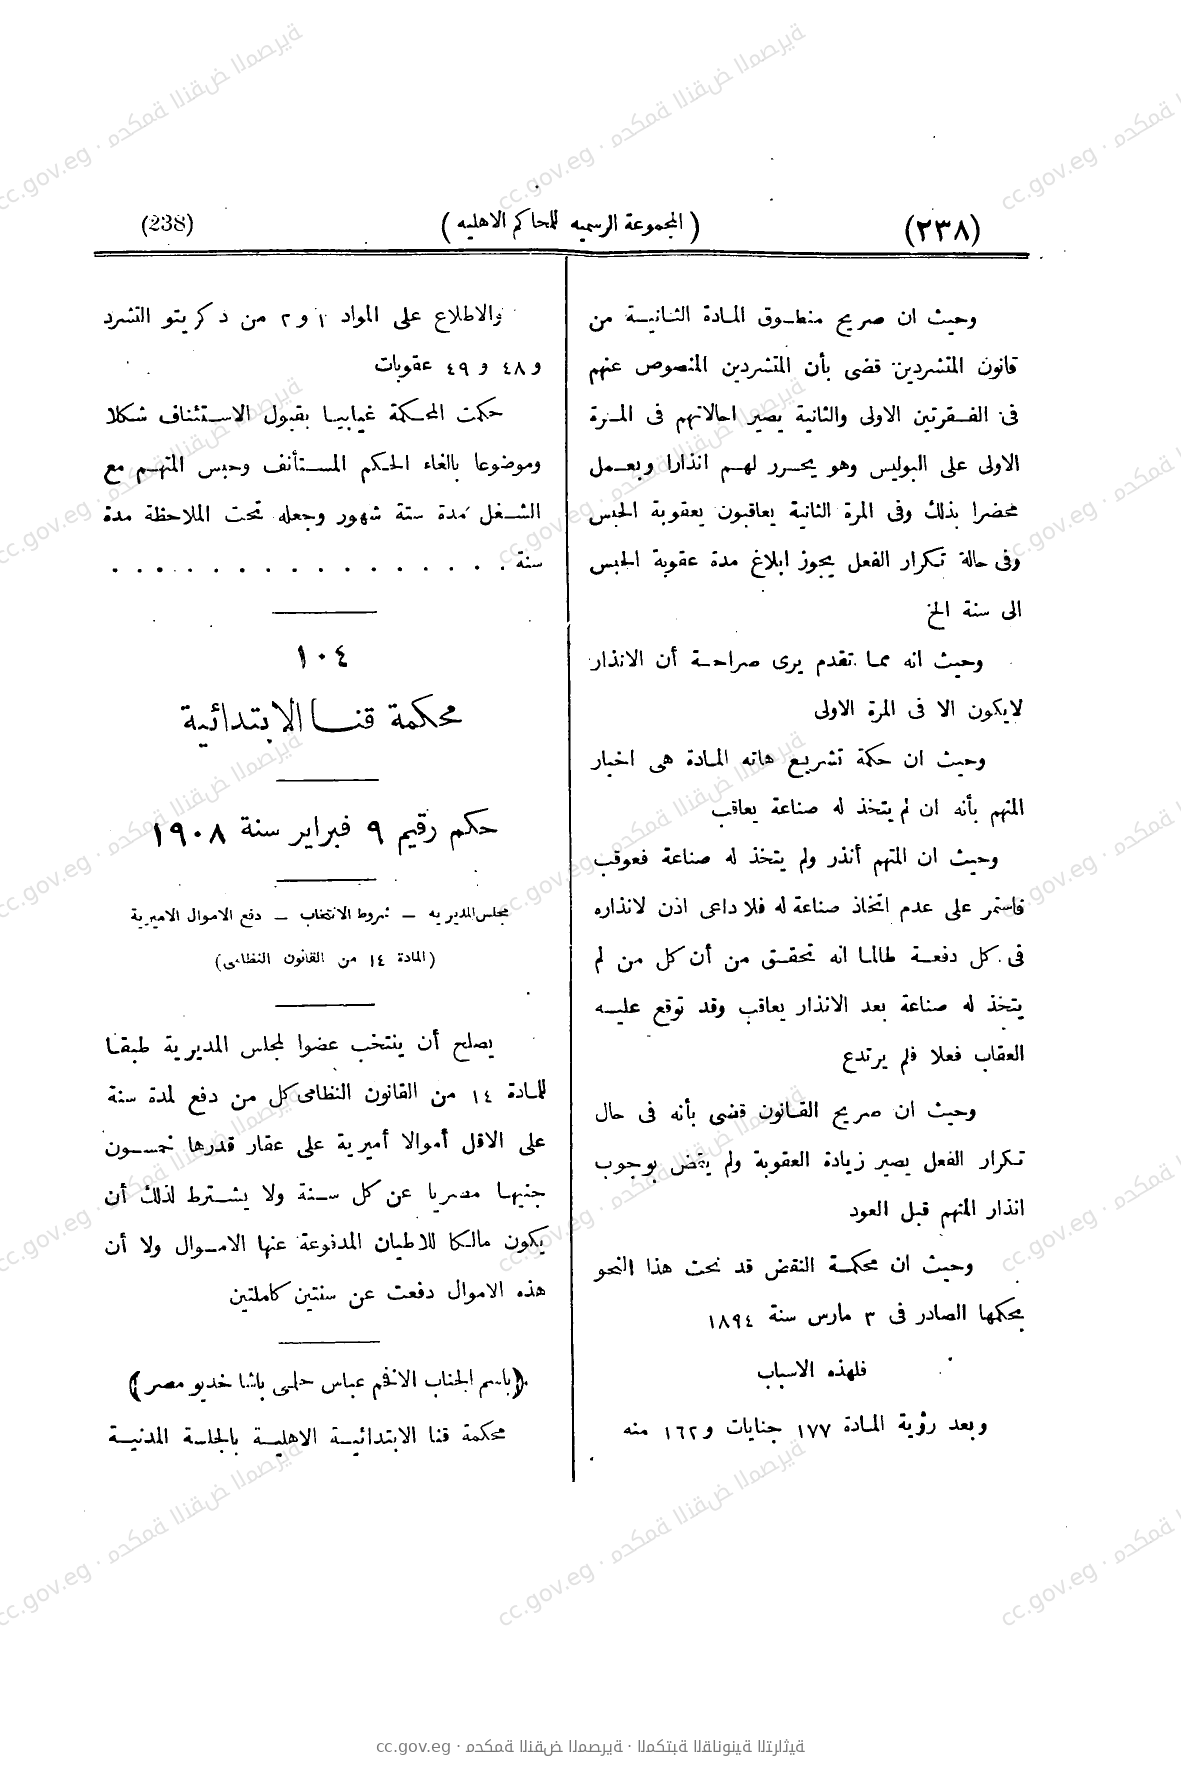 (٢٣٨)
( المجموعة الرسميه للمحاكم الاهليه )
(238)
وحيث ان صريح منطـوق المـادة الثـانيـة من
قانون المتشردين قضى بأن المتشردين المنصوص عنهم
فى الفـقرتين الاولى والثانية يصير احالاتهم فى المـرة
الاولى على البوليس وهو يحـرر لهـم انذارا ويعـمل
محضرا بذلك وفى المرة الثانية يعاقبون بعقوبة الحبس
وفى حالة تكرار الفعل يجوز ابلاغ مدة عقوبة الحبس
الى سنة الخ
وحيث انه ممـا تقدم يرى صراحـة أن الانذار
لايكون الا فى المرة الاولى
وحيث ان حكمة تشريـع هاته المـادة هى اخبار
المتهم بأنه ان لم يتخذ له صناعة يعاقب
وحيث ان المتهم أنذر ولم يتخذ له صناعة فعوقب
فاستمر على عدم اتخاذ صناعة له فلا داعى اذن لانذاره
فى كل دفعـة طالمـا انه تحقـق من أن كل من لم
يتخذ له صناعة بعد الانذار يعاقب وقد توقع عليـه
العقاب فعلا فلم يرتدع
وحيث ان صريح القـانون قضى بأنه فى حال
تكرار الفعل يصير زيادة العقوبة ولم يقض بوجوب
انذار المتهم قبل العود
وحيث ان محكمـة النقض قد نحت هذا النحو
بحكمها الصادر فى ٣ مارس سنة ١٨٩٤
فلهذه الاسباب
وبعد رؤية المـادة ١٧٧ جنايات و١٦٢ منه
والاطلاع على المواد ١ و ٢ من دكريتو التشرد
و ٤٨ و ٤٩ عقوبات
حكمت المحـكمة غيابيـا بقبول الاسـتئناف شكلا
وموضوعا بالغاء الحـكم المسـتأنف وحبس المتهـم مع
الشـغل مدة ستة شهور وجعله تحت الملاحظة مدة
سنة . . . . . . . . . . . . . . . . .
١٠٤
محكمة قنـا الابتدائية
حكم رقيم ٩ فبراير سنة ١٩٠٨
مجلس المديريه — شروط الانتخاب — دفع الاموال الاميرية
(المادة ١٤ من القانون النظامى)
يصلح أن ينتخب عضوا لمجلس المديرية طبقـا
للمـادة ١٤ من القانون النظامى كل من دفع لمدة سنة
على الاقل أموالا أميرية على عقار قدرها خمسـون
جنيهـا مصريا عن كل سـنة ولا يشـترط لذلك أن
يكون مالكا للاطيان المدفوعة عنها الامـوال ولا أن
هذه الاموال دفعت عن سنتين كاملتين
(باسم الجناب الافخم عباس حلمى باشا خديو مصر)
محكمة قنا الابتدائيـة الاهليـة بالجلسة المدنيـة
cc.gov.eg · محكمة النقض المصرية · المكتبة القانونية التراثية